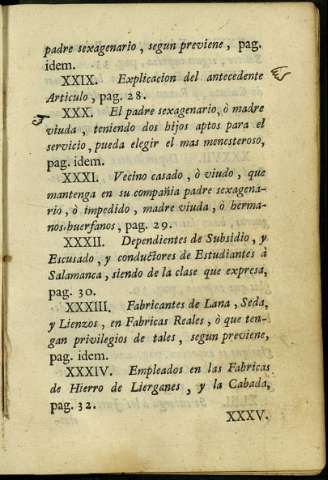 padre sexagenario, segun previene, pag.
idem.
XXIX. Explicacion del antecedente
Articulo, pag. 28.
XXX. El padre sexagenario, ò madre
viuda, teniendo dos hijos aptos para el
servicio, pueda elegir el mas menesteroso,
pag. idem.
XXXI. Vecino casado, ò viudo, que
mantenga en su compañia padre sexagena-
rio, ò impedido, madre viuda, ò herma-
nos huerfanos, pag. 29.
XXXII. Dependientes de Subsidio, y
Escusado, y conductores de Estudiantes à
Salamanca, siendo de la clase que expresa,
pag. 30.
XXXIII. Fabricantes de Lana, Seda,
y Lienzos, en Fabricas Reales, ò que ten-
gan privilegios de tales, segun previene,
pag. idem.
XXXIV. Empleados en las Fabricas
de Hierro de Lierganes, y la Cabada,
pag. 32.
XXXV.